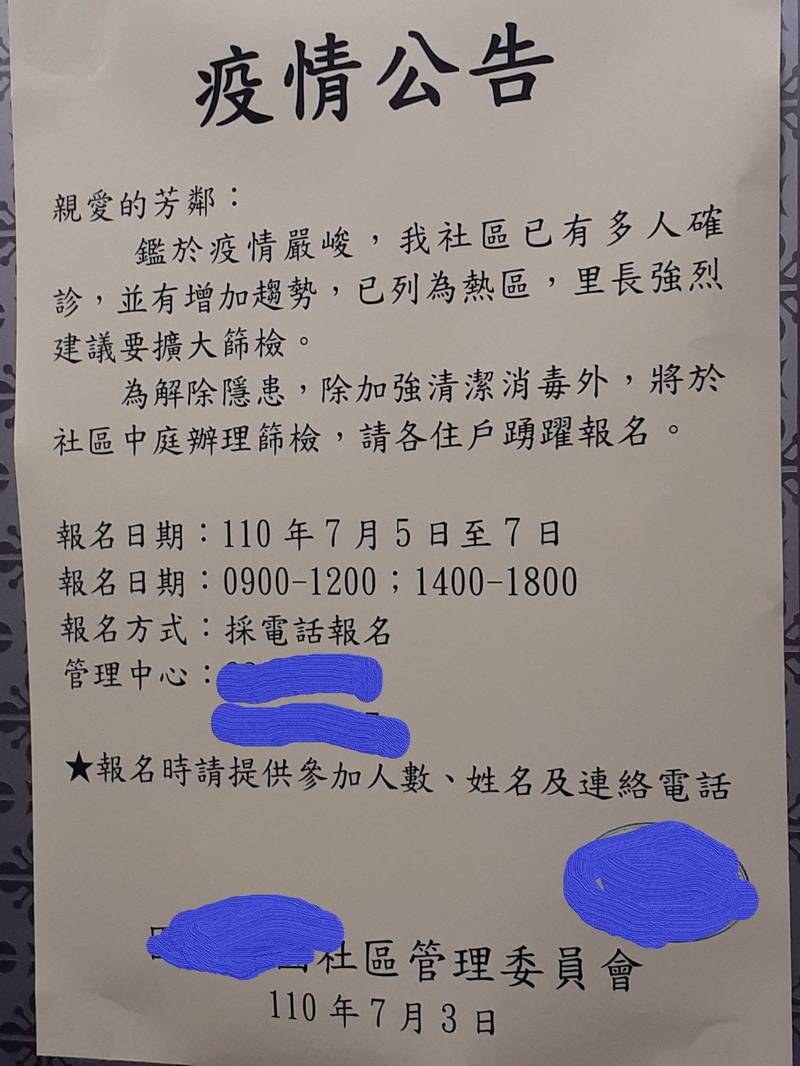 疫情公告
親愛的芳鄰：
鑑於疫情嚴峻，我社區已有多人確
診，並有增加趨勢，已列為熱區，里長強烈
建議要擴大篩檢。
為解除隱患，除加強清潔消毒外，將於
社區中庭辦理篩檢，請各住戶踴躍報名。
報名日期：110年7月5日至7日
報名日期：0900-1200；1400-1800
報名方式：採電話報名
管理中心：
★報名時請提供參加人數、姓名及連絡電話
社區管理委員會
110年7月3日